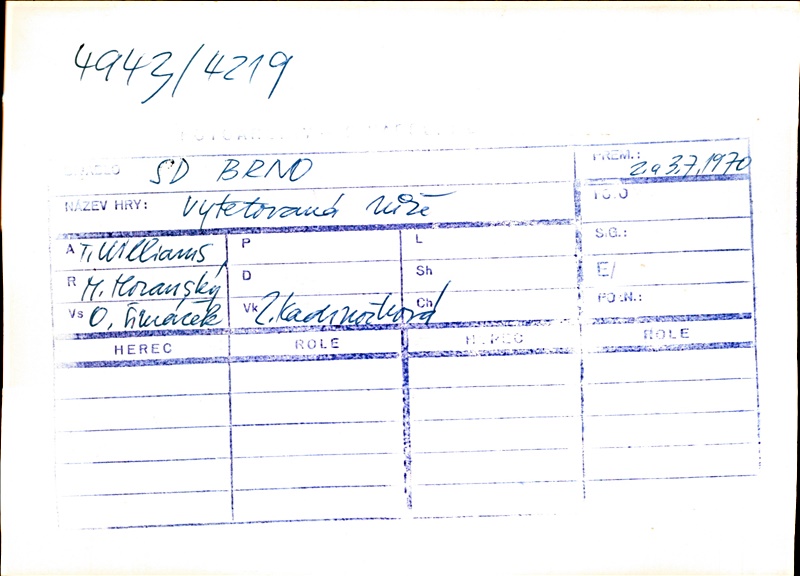 4943/4219
SD BRNO
PREM.: 2. a 3.7.1970
NÁZEV HRY: Vytetovaná růže
A T. Williams,
P
L
S.G.:
R M. Moravský
D
Sh
E/
Vs O. Šimáček
Vk Z. Kadrnožková
Ch
HEREC ROLE HEREC ROLE